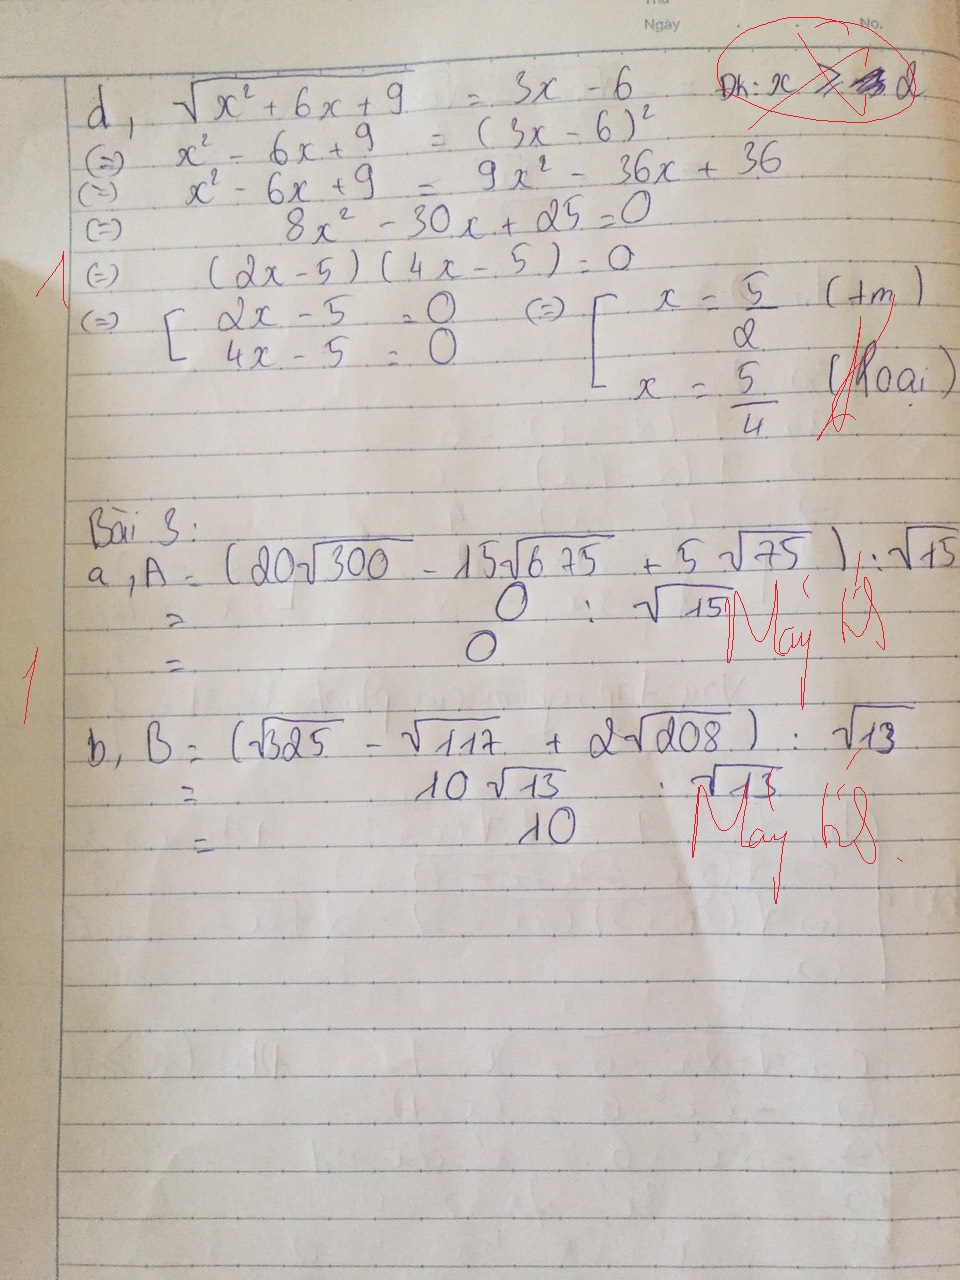 Ngày No.
d, √(x² + 6x + 9) = 3x - 6 ĐK: x ⩾ 2
(=) x² - 6x + 9 = (3x - 6)²
(=) x² - 6x + 9 = 9x² - 36x + 36
(=) 8x² - 30x + 25 = 0
1 (=) (2x - 5)(4x - 5) = 0
(=) [ 2x - 5 = 0 (=) [ x = 5/2 (tm)
4x - 5 = 0 x = 5/4 (loại)
Bài 3:
a, A = (20√300 - 15√675 + 5√75) : √15
= 0 : √15 Máy
= 0
1
b, B = (√325 - √117 + 2√208) : √13
= 10√13 : √13
= 10 Máy